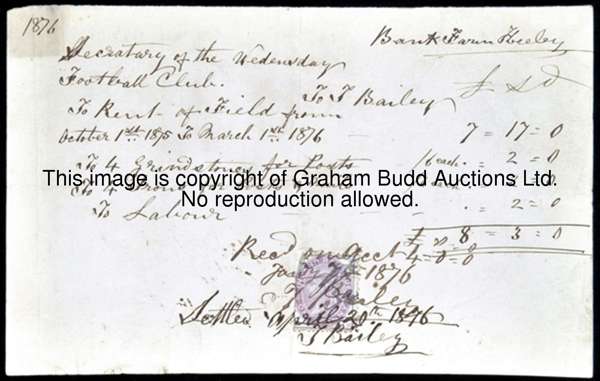 1876
Bank Farm Heeley
Secretary of the Wedensday
Football Club.
To T Bailey
£ S D
To Rent of Field from
October 1st 1875 To March 1st 1876 7 = 17 = 0
To 4 Grindstones for Posts /6 each = 2 = 0
This image is copyright of Graham Budd Auctions Ltd.
No reproduction allowed.
To 4
To Labour 2 = 0
£ 8 = 3 = 0
Recd on acct 4 = 0 = 0
1876
T Bailey
Settled April 20th 1876
T Bailey